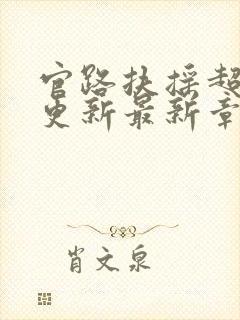 官路扶摇超
更新最新章
肖文泉